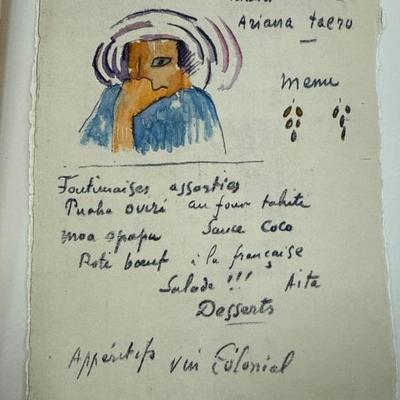 Ariana Faero
Menu
Foutimaises assorties
Puaha ouri au four tahiti
moa opapu Sauce Coco
Roti bœuf à la française
Salade !!! Aita
Desserts
Appéritifs Vin Colonial